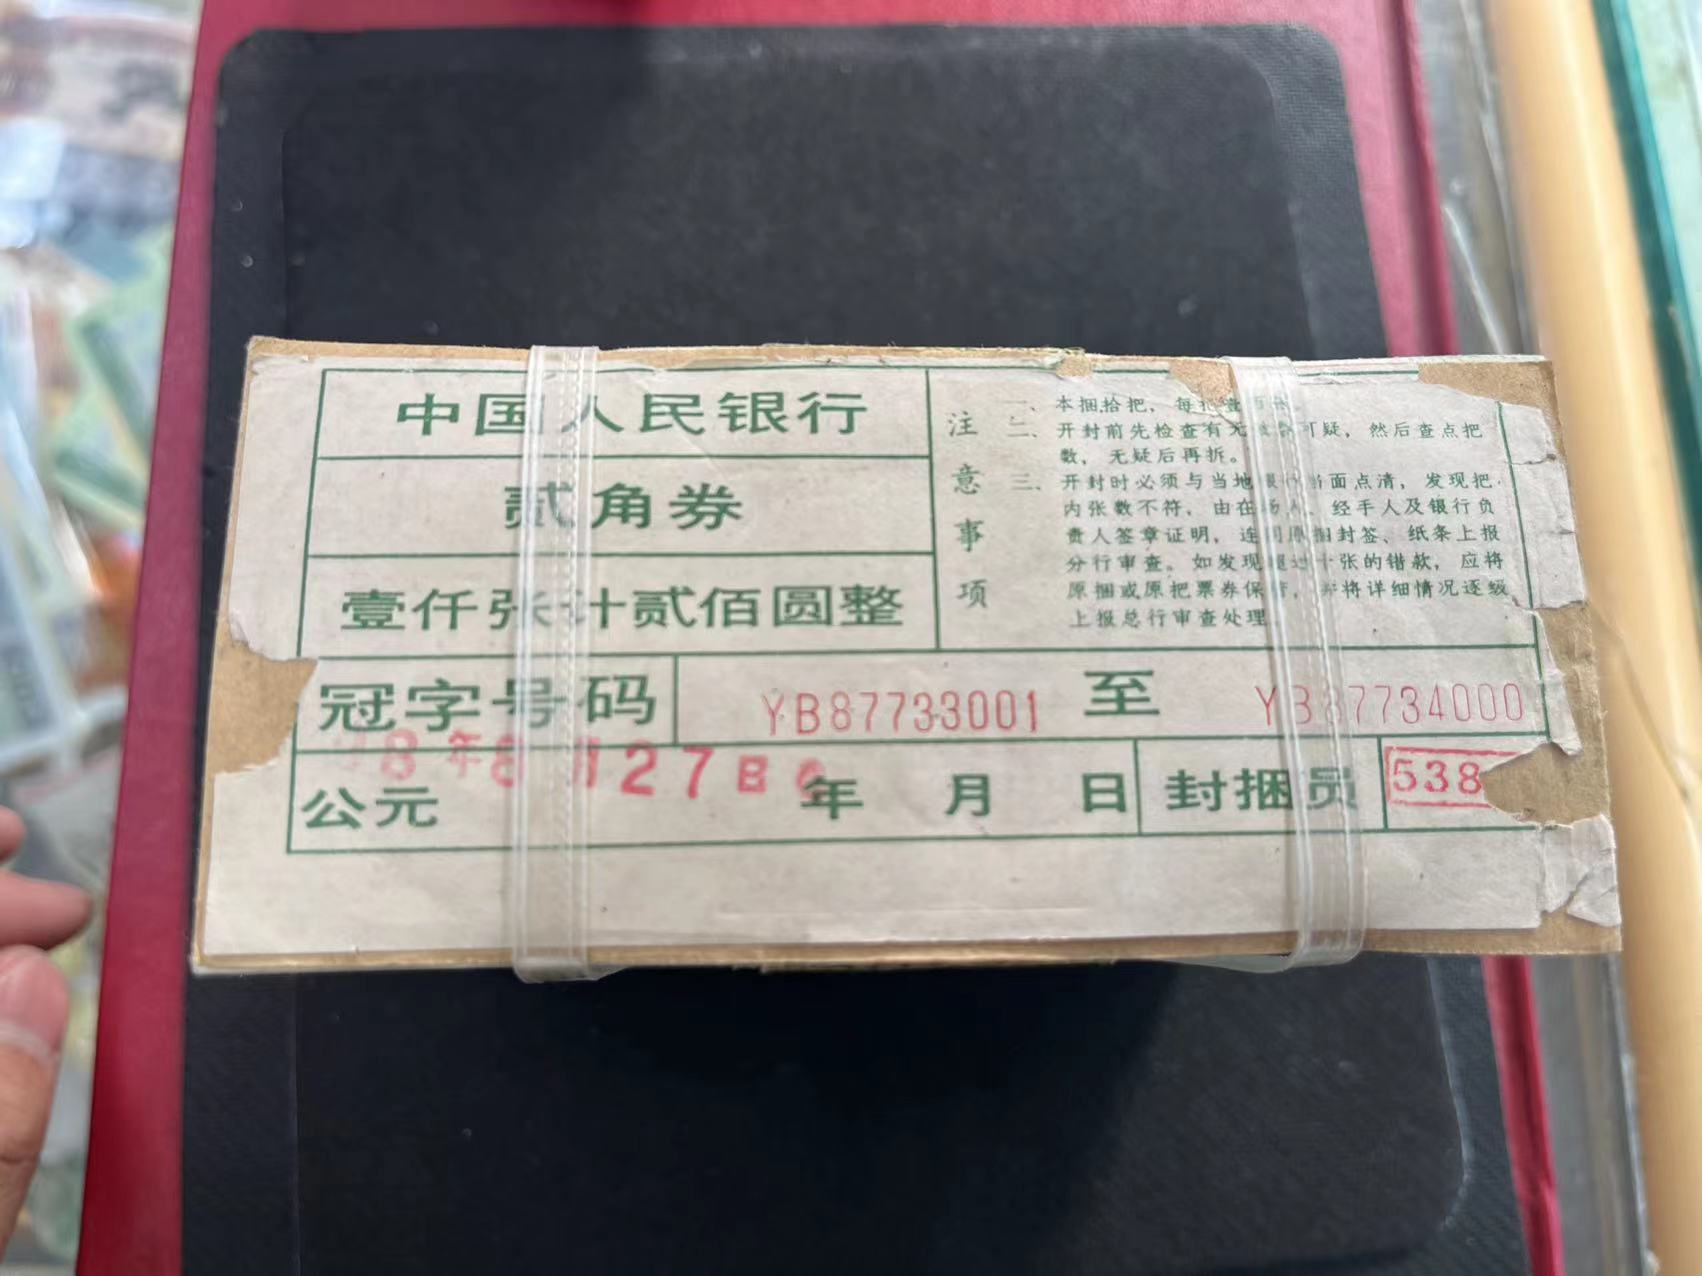 中国人民银行
贰角券
壹仟张计贰佰圆整
注意事项
一、本捆拾把，每把壹百张。
二、开封前先检查有无 可疑，然后查点把
数，无疑后再拆。
三、开封时必须与当地银行当面点清，发现把
内张数不符，由在场人、经手人及银行负
责人签章证明，连同原捆封签、纸条上报
分行审查。如发现超过十张的错款，应将
原捆或原把票券保管，并将详细情况逐级
上报总行审查处理。
冠字号码 YB87733001 至 YB87734000
98年8月27日
公元 年 月 日 封捆员 538